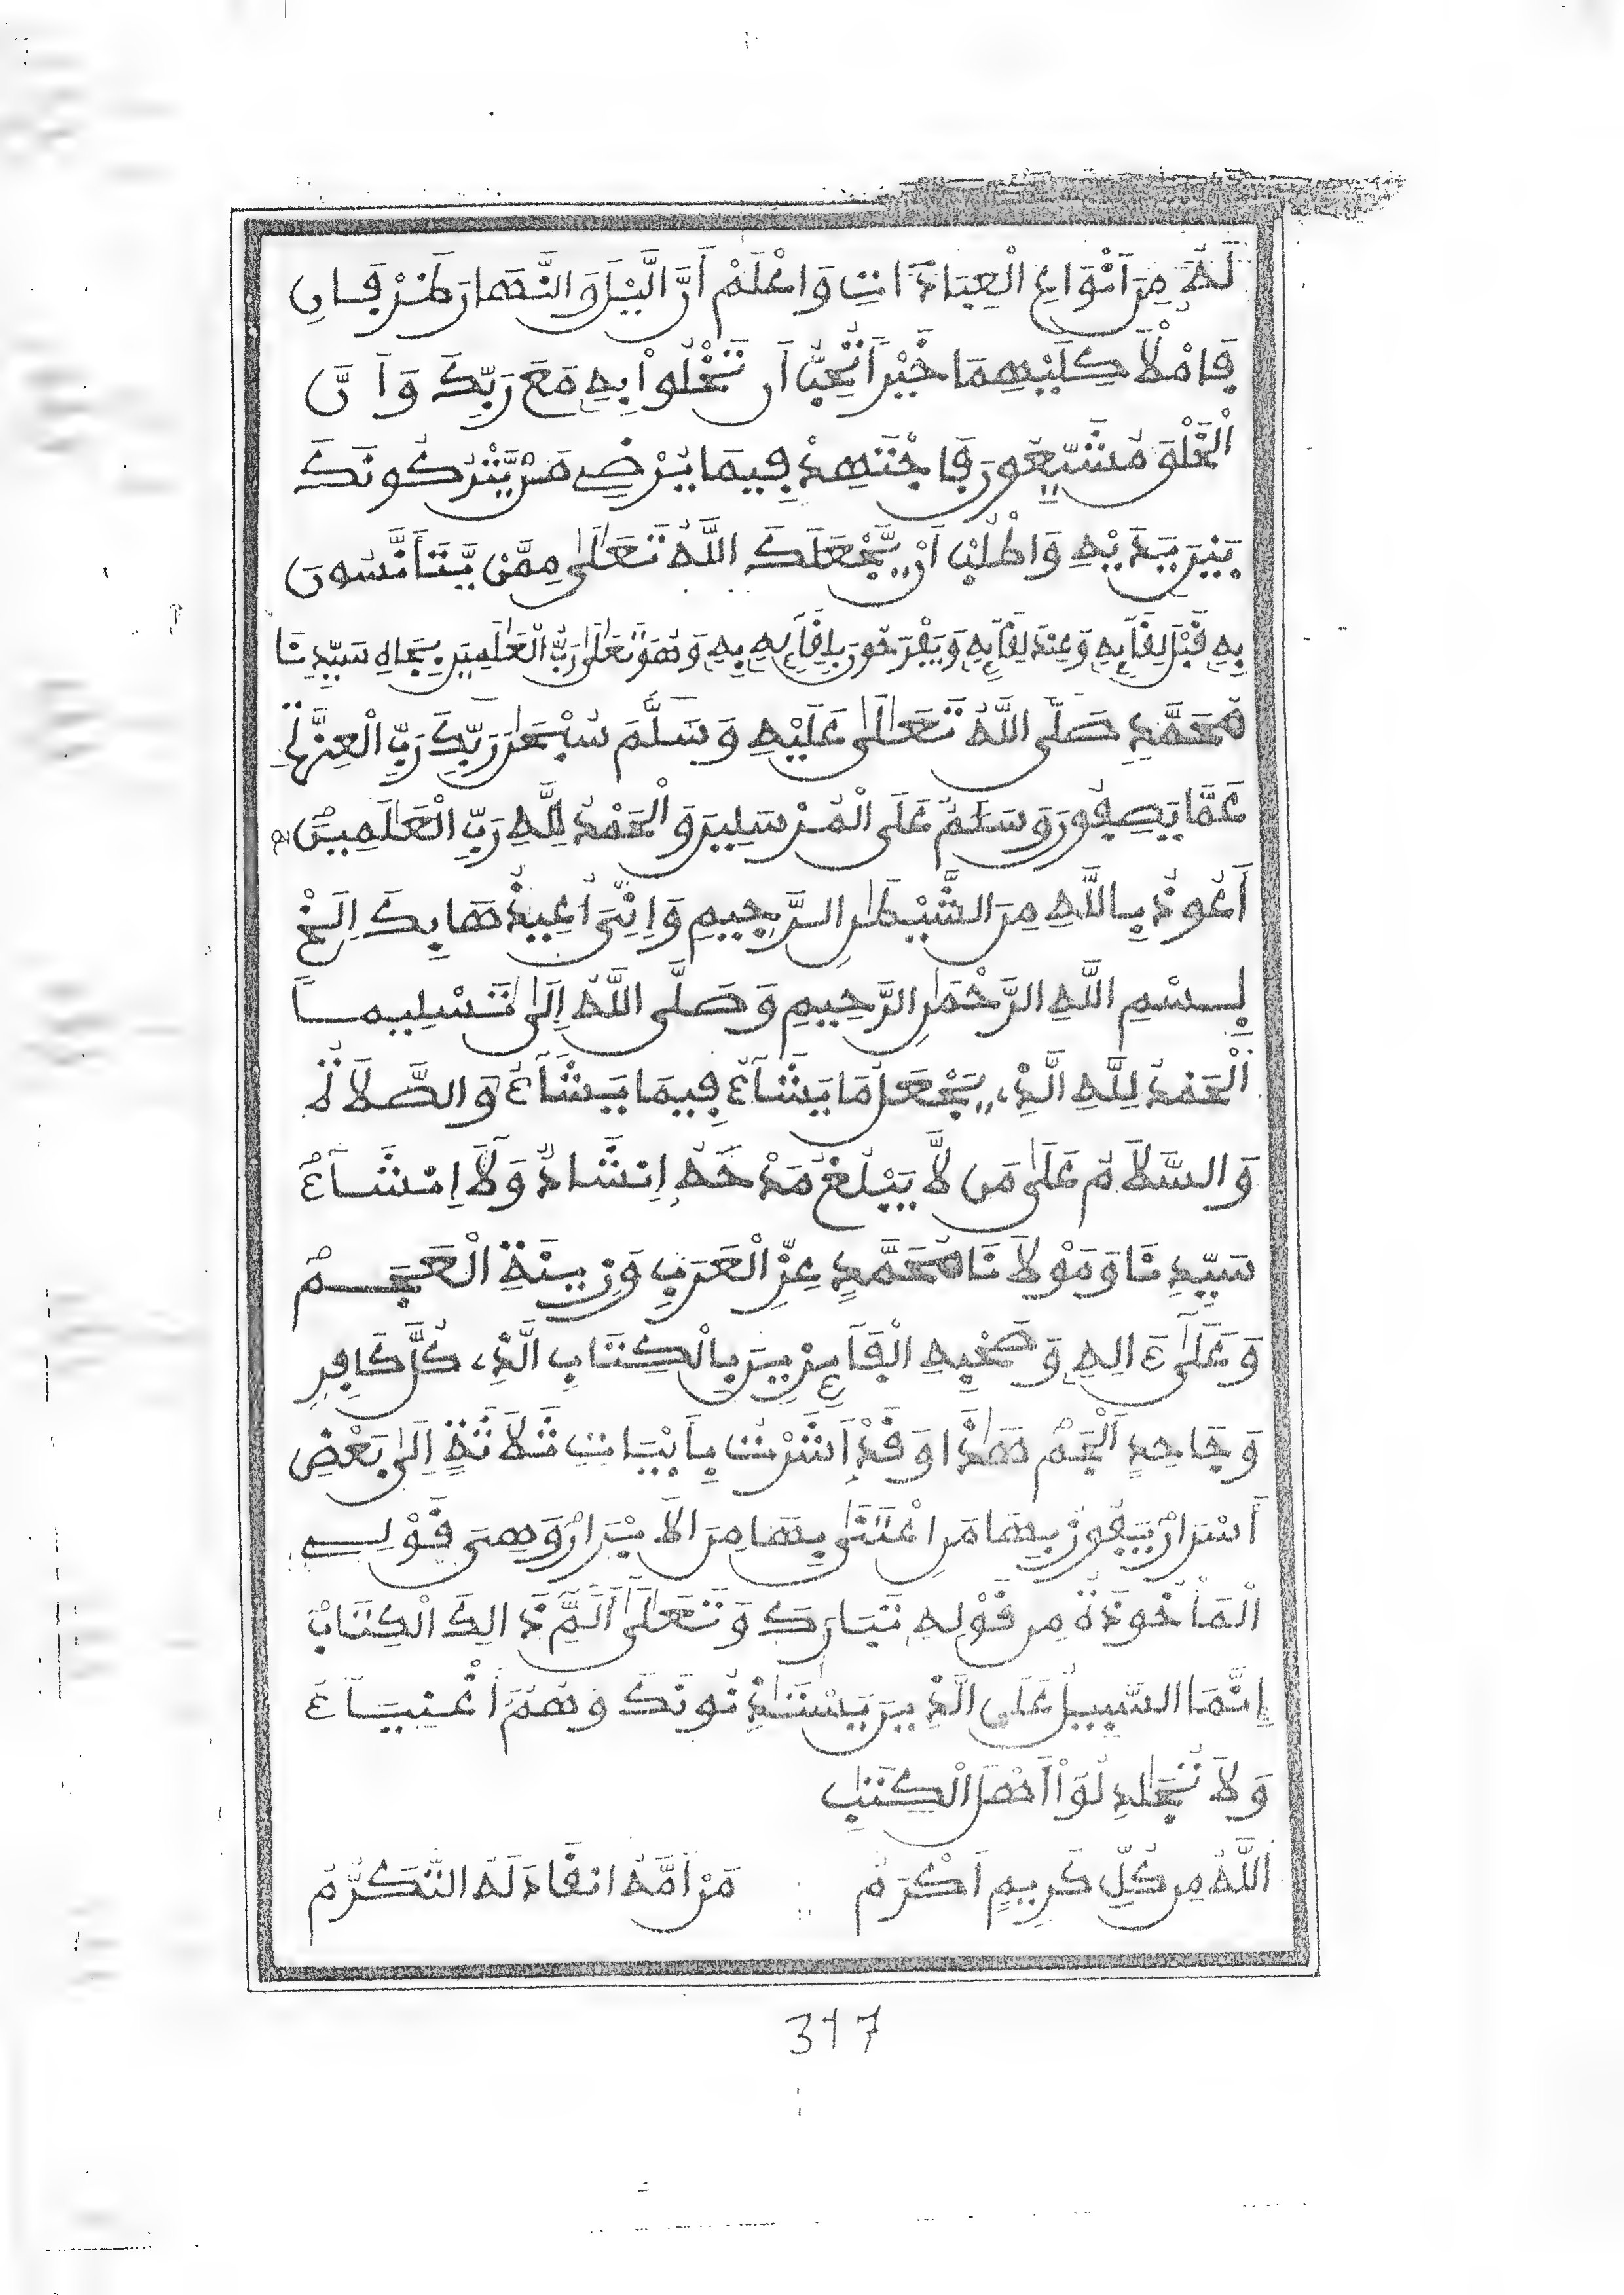 لَهُ مِنَ اَنْوَاعِ الْعِبَادَاتِ وَاعْلَمْ أَنَّ الَّيْلَ وَالنَّهَارَ ظَرْفَانِ
فَامْلَأْ كِلَيْهِمَا خَيْرًا تُحِبُّ أَن تَخْلُوَاْ بِهِ مَعَ رَبِّكَ وَأَنَّ
الْخَلْقَ مُشَيِّعُونَ فَاجْتَهِدْ فِيمَا يُرْضِى مَنْ يَّتْرُكُونَكَ
بَيْنَ يَدَيْهِ وَاطْلُبْ أَنْ يَّجْعَلَكَ اللَّهُ تَعَالَىٰ مِمَّنْ يَّتَأَنَّسُونَ
بِهِ قَبْلَ لِقَآئِهِ وَعِنْدَ لِقَآئِهِ وَيَفْرَحُونَ بِلِقَآئِهِ بِهِ وَهُوَ تَعَالَىٰ رَبُّ الْعَٰلَمِينَ بِجَاهِ سَيِّدِنَا
مُحَمَّدٍ صَلَّى اللَّهُ تَعَالَىٰ عَلَيْهِ وَسَلَّمَ سُبْحَٰنَ رَبِّكَ رَبِّ الْعِزَّةِ
عَمَّا يَصِفُونَ وَسَلَٰمٌ عَلَى الْمُرْسَلِينَ وَالْحَمْدُ لِلَّهِ رَبِّ الْعَٰلَمِينَ
أَعُوذُ بِاللَّهِ مِنَ الشَّيْطَٰنِ الرَّجِيمِ وَإِنِّىَ أُعِيذُهَا بِكَ اِلَخْ
بِسْمِ اللَّهِ الرَّحْمَٰنِ الرَّحِيمِ وَصَلَّى اللَّهُ إِلَىٰ تَسْلِيمًا
اَلْحَمْدُ لِلَّهِ الَّذِى يَجْعَلُ مَا يَشَآءُ فِيمَا يَشَآءُ وَالصَّلَاةُ
وَالسَّلَامُ عَلَىٰ مَن لَّا يَبْلُغُ مَدْحَهُ اِنشَادٌ وَلَآ اِنْشَآءٌ
سَيِّدِنَا وَمَوْلَانَا مُحَمَّدٍ عِزِّ الْعَرَبِ وَزِينَةِ الْعَجَمِ
وَعَلَىٰ ءَالِهِ وَصَحْبِهِ الْفَآئِزِينَ بِالْكِتَابِ الَّذِى كُلَّ كَافِرٍ
وَجَاحِدٍ اَلْجَمَ هَٰذَا وَقَدْ اَشَرْتُ بِأَبْيَاتٍ ثَلَاثَةٍ اِلَىٰ بَعْضِ
أَسْرَارٍ يَفُوزُ بِهَا مَنِ اعْتَنَىٰ بِهَا مِنَ الْأَبْرَارِ وَهِىَ قَوْلِى
الْمَأْخُوذَةُ مِن قَوْلِهِ تَبَارَكَ وَتَعَالَىٰ اَلَمِّ ذَالِكَ الْكِتَابُ
إِنَّمَا السَّبِيلُ عَلَى الَّذِينَ يَسْتَٰذِنُونَكَ وَهُمُ أَغْنِيَآءُ
وَلَا تُجَٰدِلُوٓاْ أَهْلَ الْكِتَٰبِ
اَللَّهُ مِن كُلِّ كَرِيمٍ اَكْرَمُ مَنْ اَمَّهُ انقَادَ لَهُ التَّكَرُّمُ
317